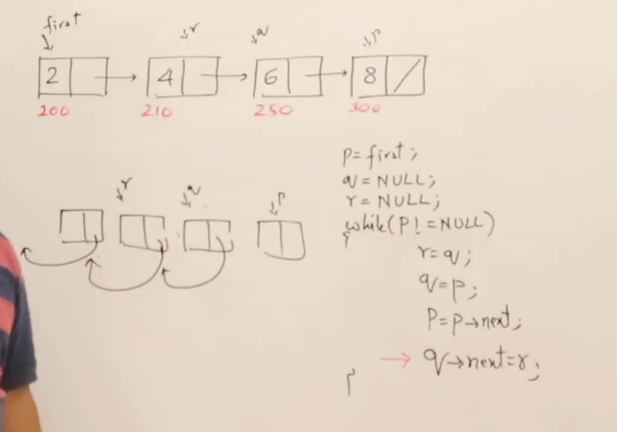 first
r q p
2 4 6 8
200 210 250 300
r q p
p=first;
q=NULL;
r=NULL;
while(P!=NULL)
{
r=q;
q=p;
P=p→next;
→ q→next=r;
}